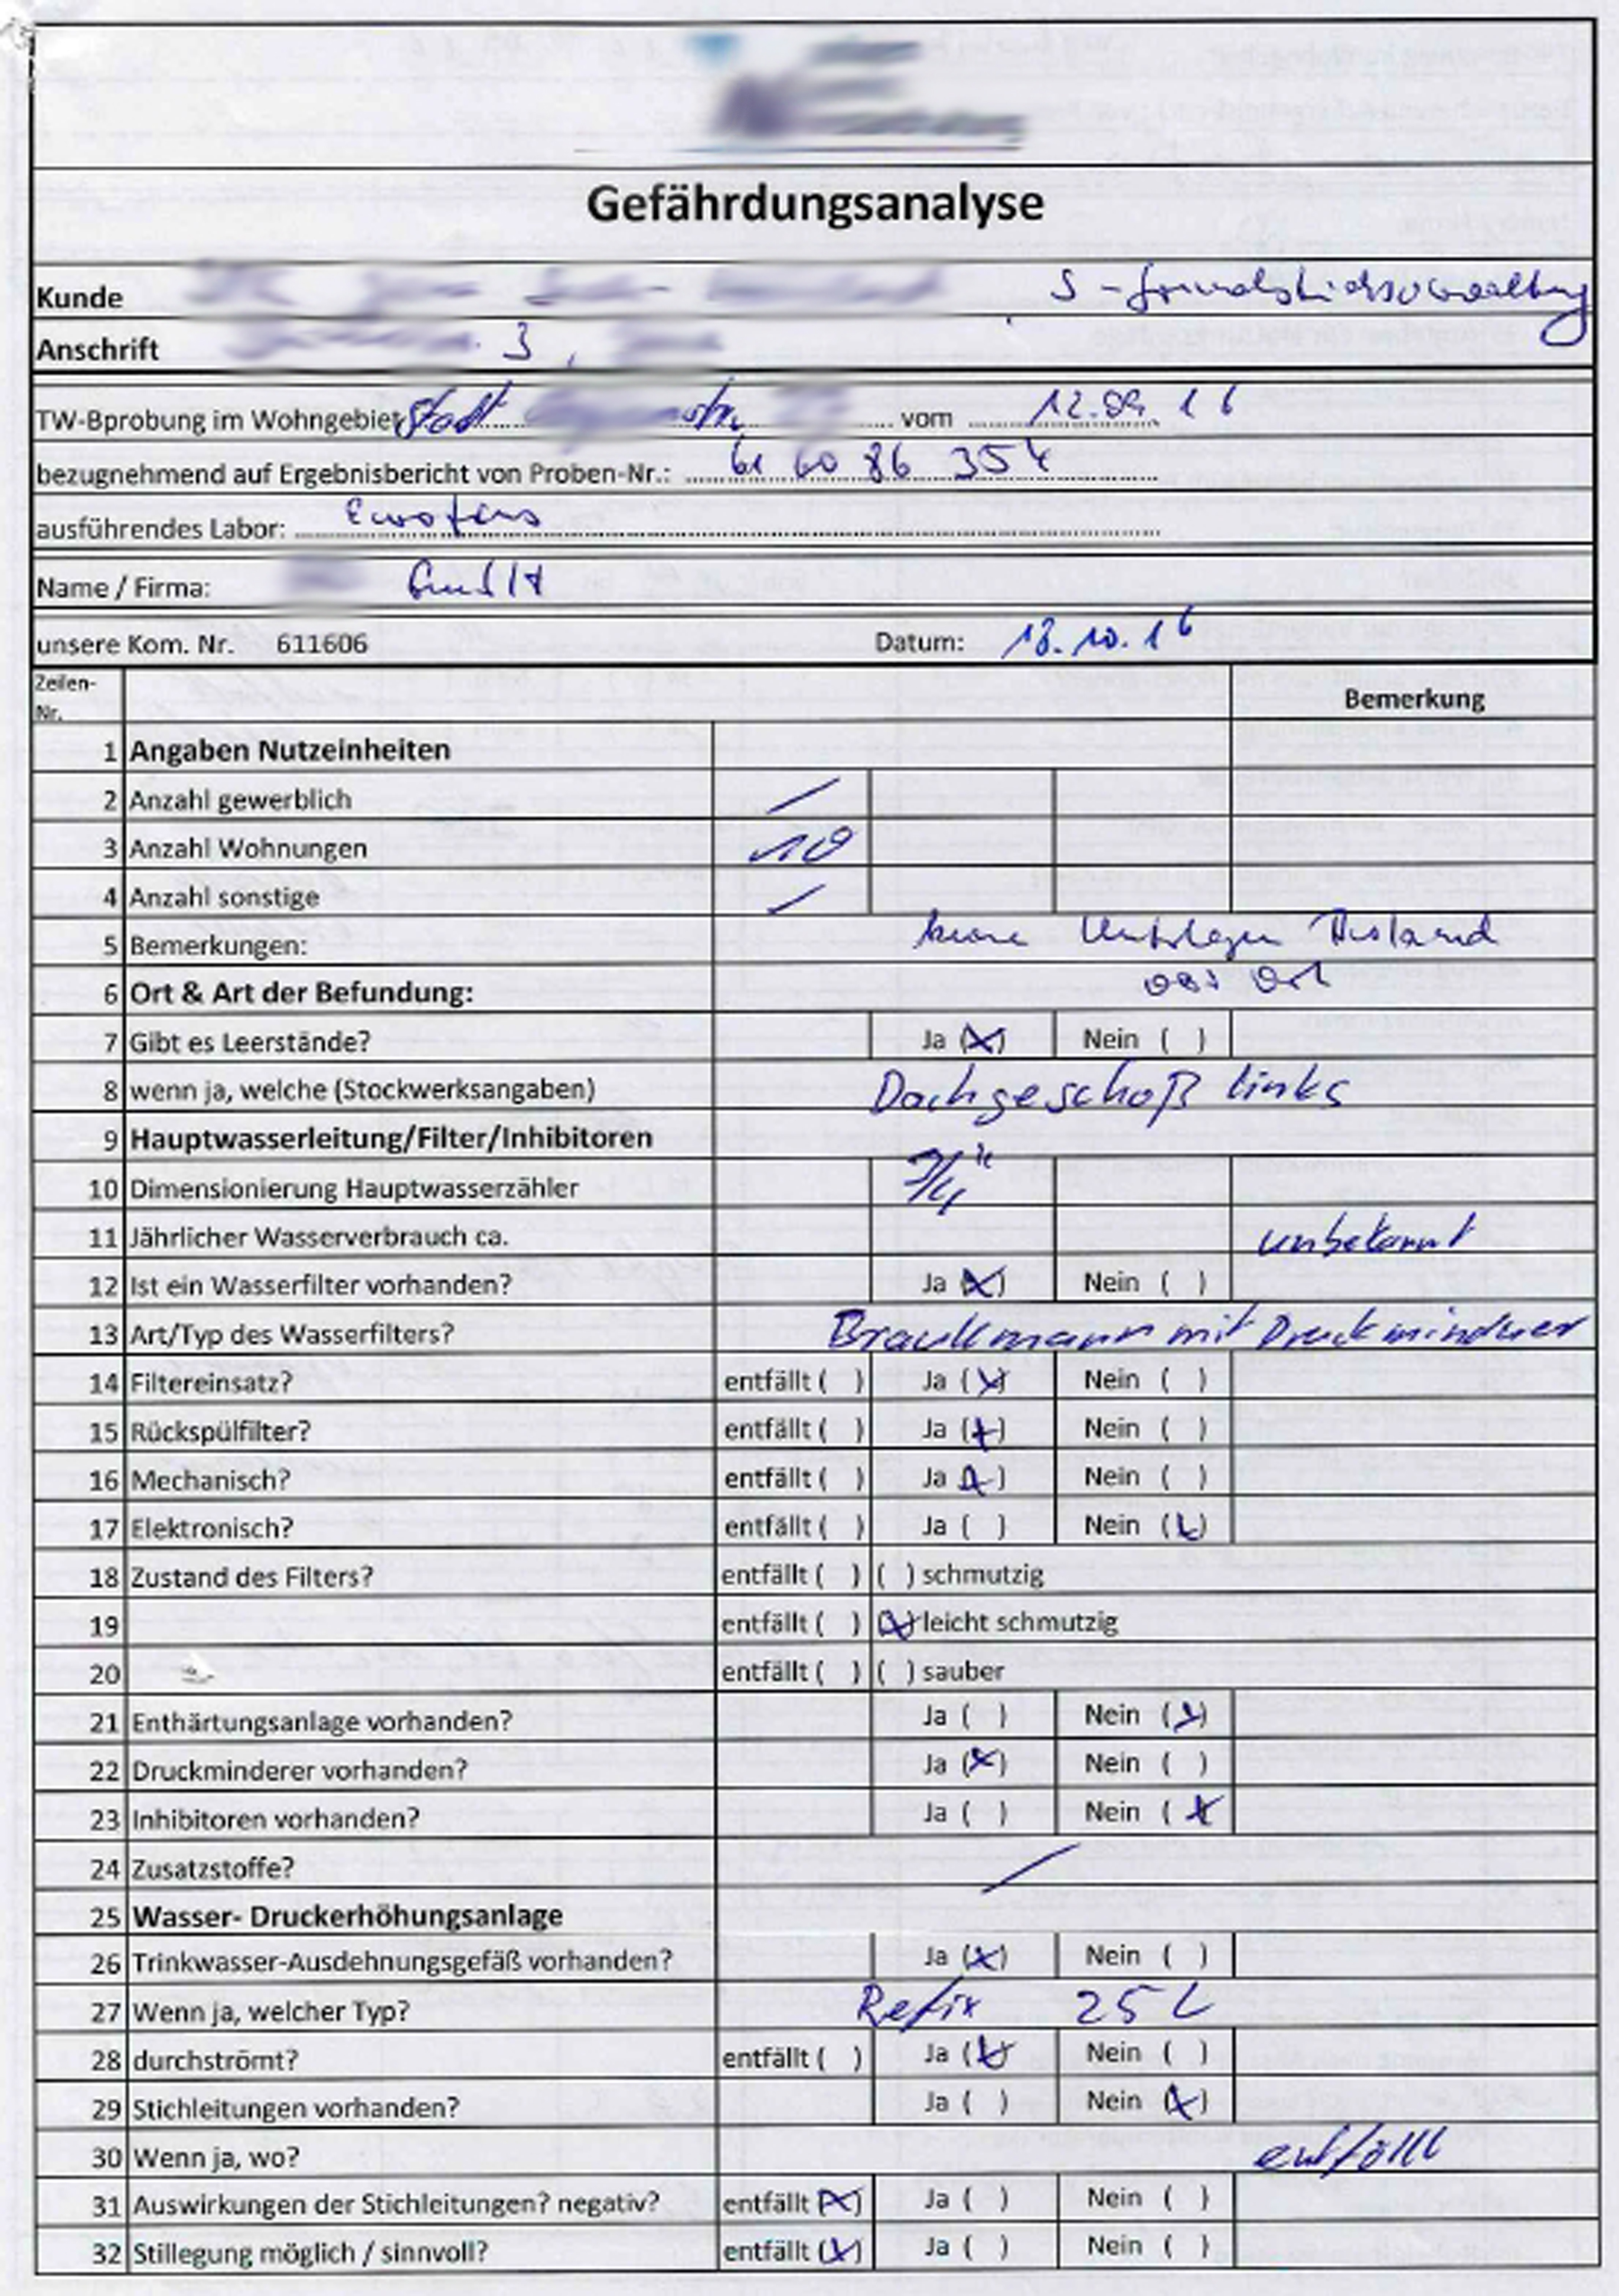 Gefährdungsanalyse
Kunde
Anschrift 3,
TW-Bprobung im Wohngebiet Stadt vom 12.09.16
bezugnehmend auf Ergebnisbericht von Proben-Nr.: 61 60 86 354
ausführendes Labor: Eurofins
Name / Firma: GmbH
unsere Kom. Nr. 611606 Datum: 18.10.16
Zeilen-
Nr. Bemerkung
1 Angaben Nutzeinheiten
2 Anzahl gewerblich /
3 Anzahl Wohnungen 10
4 Anzahl sonstige /
5 Bemerkungen: keine Unterlagen
6 Ort & Art der Befundung: vor Ort
7 Gibt es Leerstände? Ja (x) Nein ( )
8 wenn ja, welche (Stockwerksangaben) Dachgeschoß links
9 Hauptwasserleitung/Filter/Inhibitoren
10 Dimensionierung Hauptwasserzähler
11 Jährlicher Wasserverbrauch ca. unbekannt
12 Ist ein Wasserfilter vorhanden? Ja (x) Nein ( )
13 Art/Typ des Wasserfilters? Braukmann mit Druckminderer
14 Filtereinsatz? entfällt ( ) Ja (x) Nein ( )
15 Rückspülfilter? entfällt ( ) Ja (x) Nein ( )
16 Mechanisch? entfällt ( ) Ja (x) Nein ( )
17 Elektronisch? entfällt ( ) Ja ( ) Nein (x)
18 Zustand des Filters? entfällt ( ) ( ) schmutzig
19 entfällt ( ) (x) leicht schmutzig
20 entfällt ( ) ( ) sauber
21 Enthärtungsanlage vorhanden? Ja ( ) Nein (x)
22 Druckminderer vorhanden? Ja (x) Nein ( )
23 Inhibitoren vorhanden? Ja ( ) Nein (x)
24 Zusatzstoffe? /
25 Wasser- Druckerhöhungsanlage
26 Trinkwasser-Ausdehnungsgefäß vorhanden? Ja (x) Nein ( )
27 Wenn ja, welcher Typ? Refix 25 L
28 durchströmt? entfällt ( ) Ja (x) Nein ( )
29 Stichleitungen vorhanden? Ja ( ) Nein (x)
30 Wenn ja, wo? entfällt
31 Auswirkungen der Stichleitungen? negativ? entfällt (x) Ja ( ) Nein ( )
32 Stillegung möglich / sinnvoll? entfällt (x) Ja ( ) Nein ( )